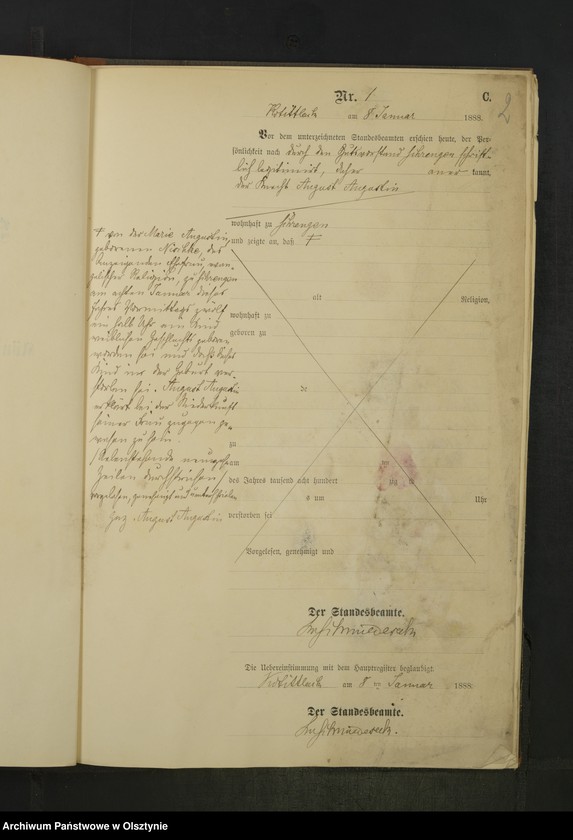 Nr. 1
C.
2
am 8 Januar 1888.
Vor dem unterzeichneten Standesbeamten erschien heute, der Per-
sönlichkeit nach durch den Gutsvorstand schrift-
lich legitimirt, daher aner kannt,
der Knecht August Augustin
wohnhaft zu
und zeigte an, daß +
+ von der Marie Augustin
geborenen des
Anzeigenden Ehefrau, evan-
gelischer Religion, zu
am achten Januar dieses
Jahres Vormittags zwölf
ein halb Uhr ein Kind
weiblichen Geschlechts geboren
worden sei und daß dieses
Kind in der Geburt ver-
storben sei. August Augustin
erklärt bei der Niederkunft
seiner Frau zugegen ge-
wesen zu sein.
Nebenstehende
Zeilen durchstrichen
vorgelesen, genehmigt und unterschrieben
gez. August Augustin
alt Religion,
wohnhaft zu
geboren zu
de
zu
am
des Jahres tausend acht hundert
zu
um Uhr
verstorben sei
Vorgelesen, genehmigt und
Der Standesbeamte.
Die Uebereinstimmung mit dem Hauptregister beglaubigt.
am 8 Januar 1888.
Der Standesbeamte.
Archiwum Państwowe w Olsztynie